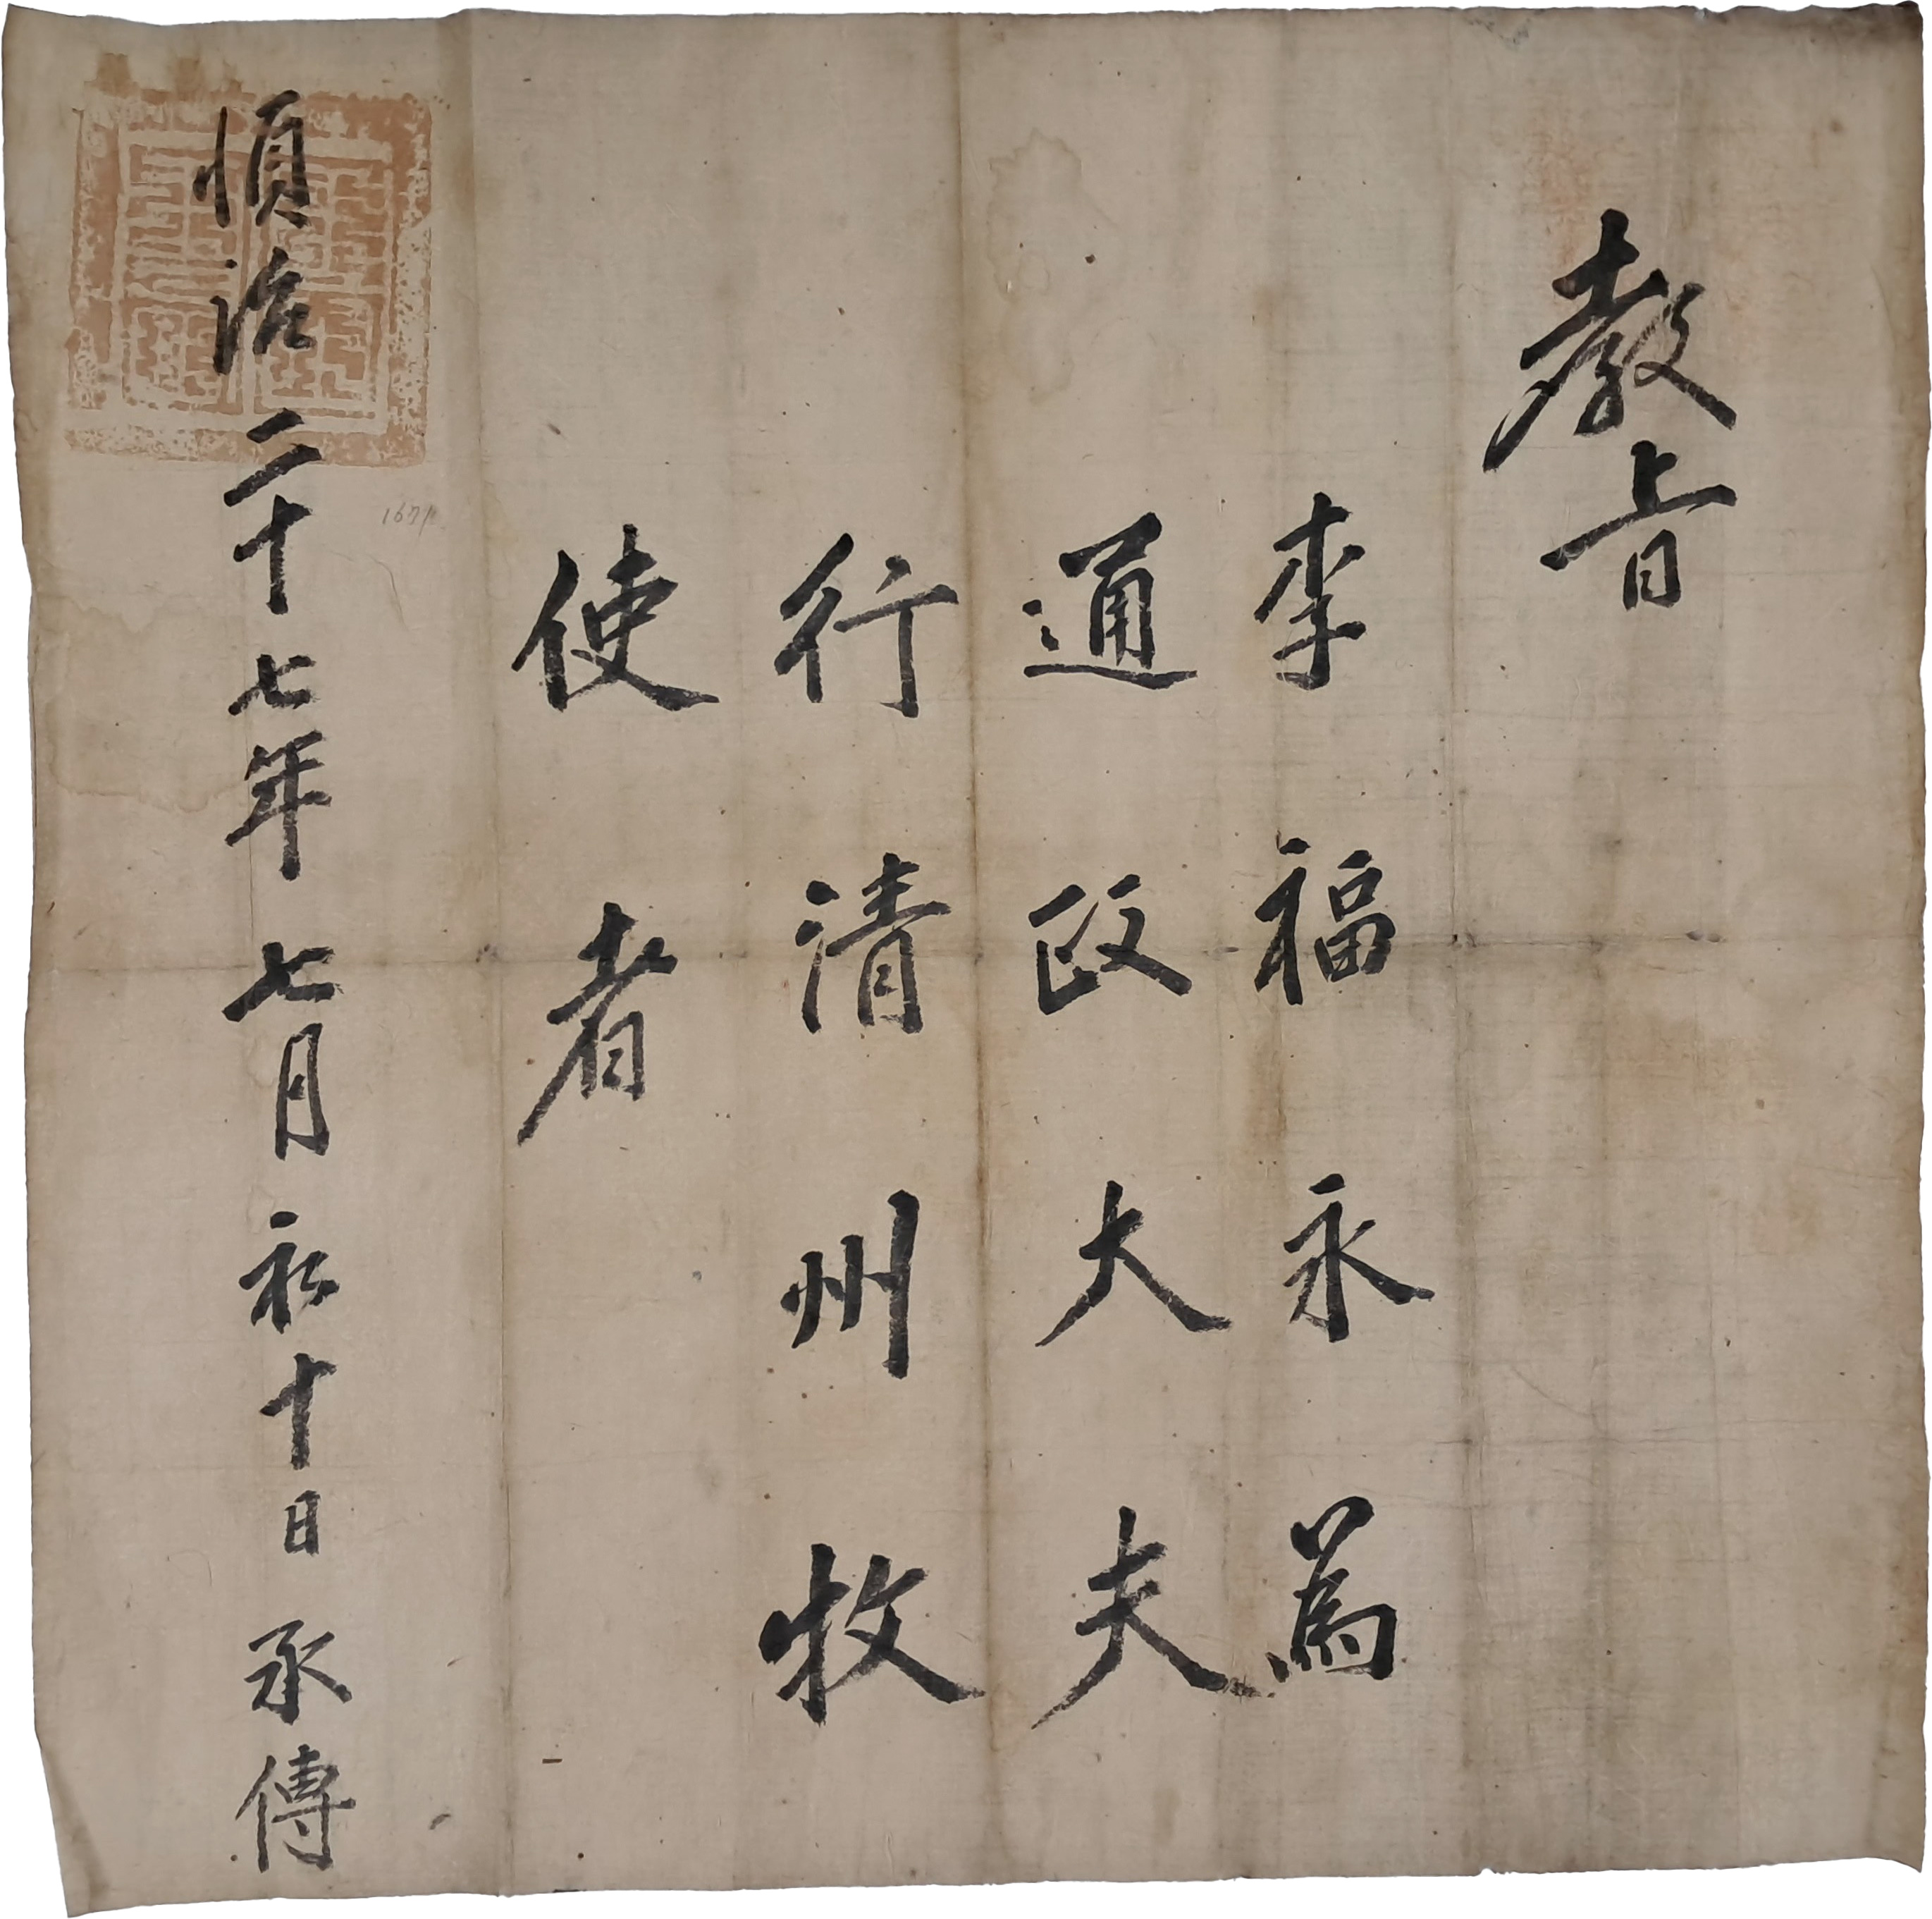 教旨
李福永爲
通政大夫
行清州牧
使者
順治二十七年七月初十日承傳